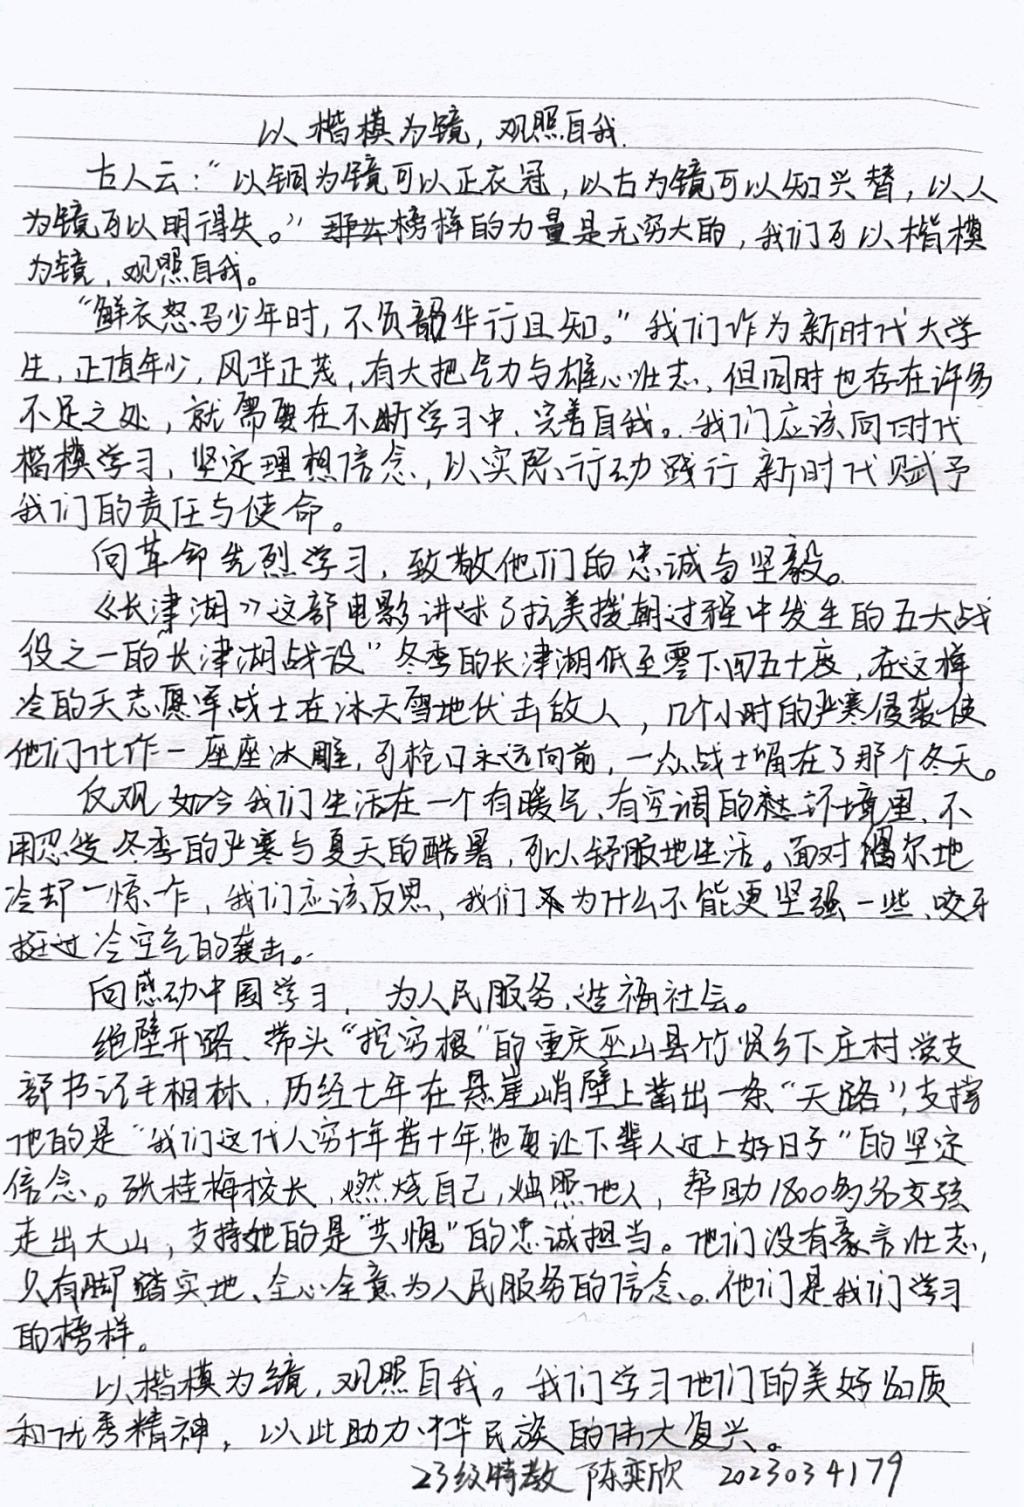 以楷模为镜，观照自我.
古人云：“以铜为镜可以正衣冠，以古为镜可以知兴替，以人
为镜可以明得失。”榜样的力量是无穷大的，我们可以楷模
为镜，观照自我。
“鲜衣怒马少年时，不负韶华行且知。”我们作为新时代大学
生，正值年少，风华正茂，有大把气力与雄心壮志，但同时也存在许多
不足之处，就需要在不断学习中，完善自我。我们应该向时代
楷模学习，坚定理想信念，以实际行动践行新时代赋予
我们的责任与使命。
向革命先烈学习，致敬他们的忠诚与坚毅。
《长津湖》这部电影讲述了抗美援朝过程中发生的五大战
役之一的长津湖战役”冬季的长津湖低至零下四五十度，在这样
冷的天志愿军战士在冰天雪地伏击敌人，几个小时的严寒侵袭使
他们化作一座座冰雕，可枪口永远向前，一众战士留在了那个冬天。
反观如今我们生活在一个有暖气、有空调的环境里，不
用忍受冬季的严寒与夏天的酷暑，可以舒服地生活。面对偶尔地
冷却一惊一乍，我们应该反思，我们为什么不能更坚强一些，咬牙
挺过冷空气的袭击。
向感动中国学习，为人民服务，造福社会。
绝壁开路、带头“挖穷根”的重庆巫山县竹贤乡下庄村党支
部书记毛相林，历经七年在悬崖峭壁上凿出一条“天路”，支撑
他的是“我们这代人穷十年苦十年，也要让下辈人过上好日子”的坚定
信念。张桂梅校长，燃烧自己，烛照他人，帮助1800多名女孩
走出大山，支持她的是“共愧”的忠诚担当。他们没有豪言壮志，
只有脚踏实地、全心全意为人民服务的信念。他们是我们学习
的榜样。
以楷模为镜，观照自我。我们学习他们的美好品质
和优秀精神，以此助力中华民族的伟大复兴。
23级特教 陈奕欣 2023034179